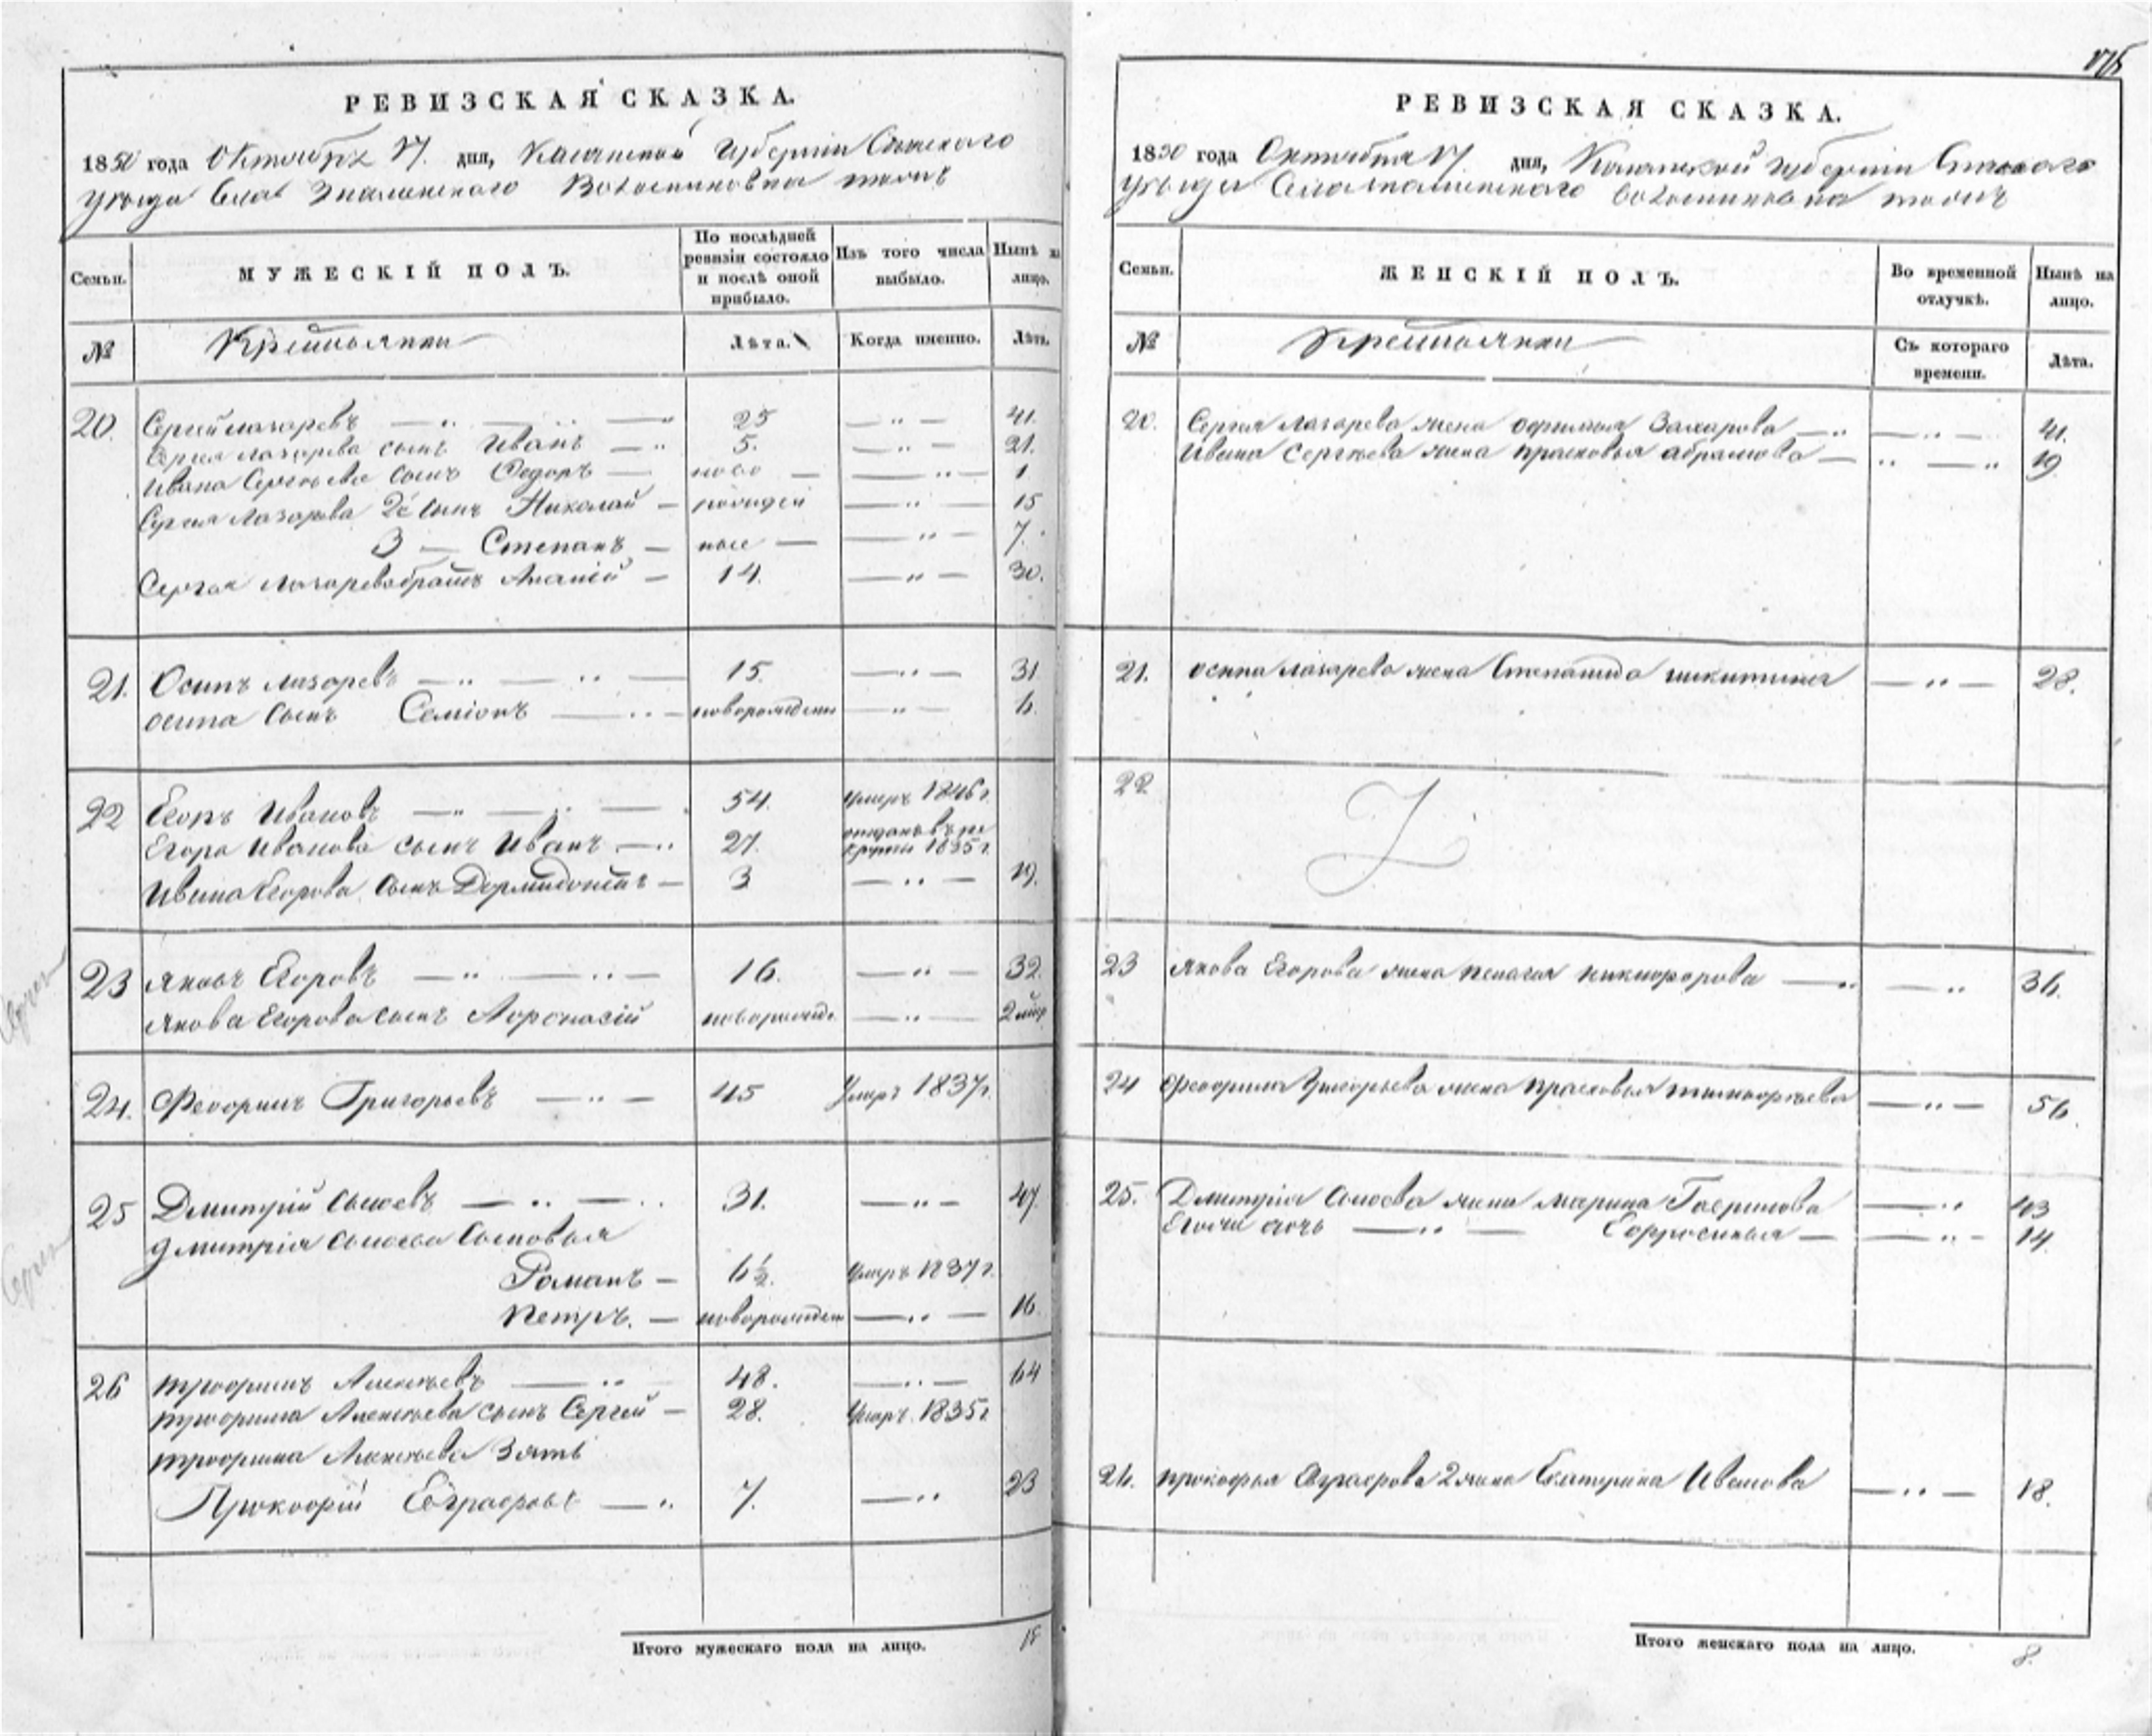 РЕВИЗСКАЯ СКАЗКА.
1850 года Октября 17. дня, Казанской Губернiи Спаского
уѣзда Села
Семьи.
МУЖЕСКIЙ ПОЛЪ.
По послѣдней ревизiи состояло и послѣ оной прибыло.
Изъ того числа выбыло.
Нынѣ на лицо.
№
Крестьянин
Лѣта.
Когда именно.
Лѣта.
20. Сергей Лазаревъ — 25 — 41.
Сергея Лазарева сынъ Иванъ — 5. — 21.
Ивана Сергѣева сынъ Федоръ — ново — 1
Сергея Лазарева 2й сынъ Николай — рожден — 15
3 — Степанъ — ные — 7.
Сергея Лазарева братъ Ананiй — 14. — 30.
21. Осипъ Лазаревъ — 15. — 31
Осипа сынъ Семiонъ — новорожден — 6.
22 Егоръ Ивановъ — 54. умеръ 1846 г.
Егора Иванова сынъ Иванъ — 27. отданъ в ре
круты 1835 г.
Ивана Егорова сынъ Дормидонтъ — 3 — 19.
23 Яковъ Егоровъ — 16. — 32.
Якова Егорова сынъ Афонасiй новорожд. — 2
24. Феофинъ Григорьевъ — 45 Умеръ 1837 г.
25 Дмитрiй Сысоевъ — 31. — 47.
Дмитрiя Сысоева сыновья
Романъ — 6½. Умеръ 1837 г.
Петръ. — новорожден — 16.
26 Трофимъ Алексѣевъ — 48. — 64
Трофима Алексѣева сынъ Сергей — 28. Умеръ 1835 г.
Трофима Алексѣева Зять
Прокофiй Евграфовъ — 7. — 23
Итого мужескаго пола на лицо.
РЕВИЗСКАЯ СКАЗКА.
1850 года Октября 17 дня, Казанской Губернiи Спаскаго
уѣзда Села
Семьи.
ЖЕНСКIЙ ПОЛЪ.
Во временной отлучкѣ.
Нынѣ на лицо.
№
Крестьянки
Съ котораго времени.
Лѣта.
20. Сергея Лазарева жена Офимья Захарова — 41.
Ивана Сергѣева жена Прасковья Абрамова — 19
21. Осипа Лазарева жена Степанида Никитина — 28.
22
23 Якова Егорова жена Пелагея Никифорова — 36.
24 Григорьева жена Прасковья — 56.
25. Дмитрiя Сысоева жена Марина Гаврилова — 43
Егожъ дочь — Ефросинья — 14.
26. Прокофья Евграфова 2 жена Катерина Иванова — 18.
Итого женскаго пола на лицо. 8.